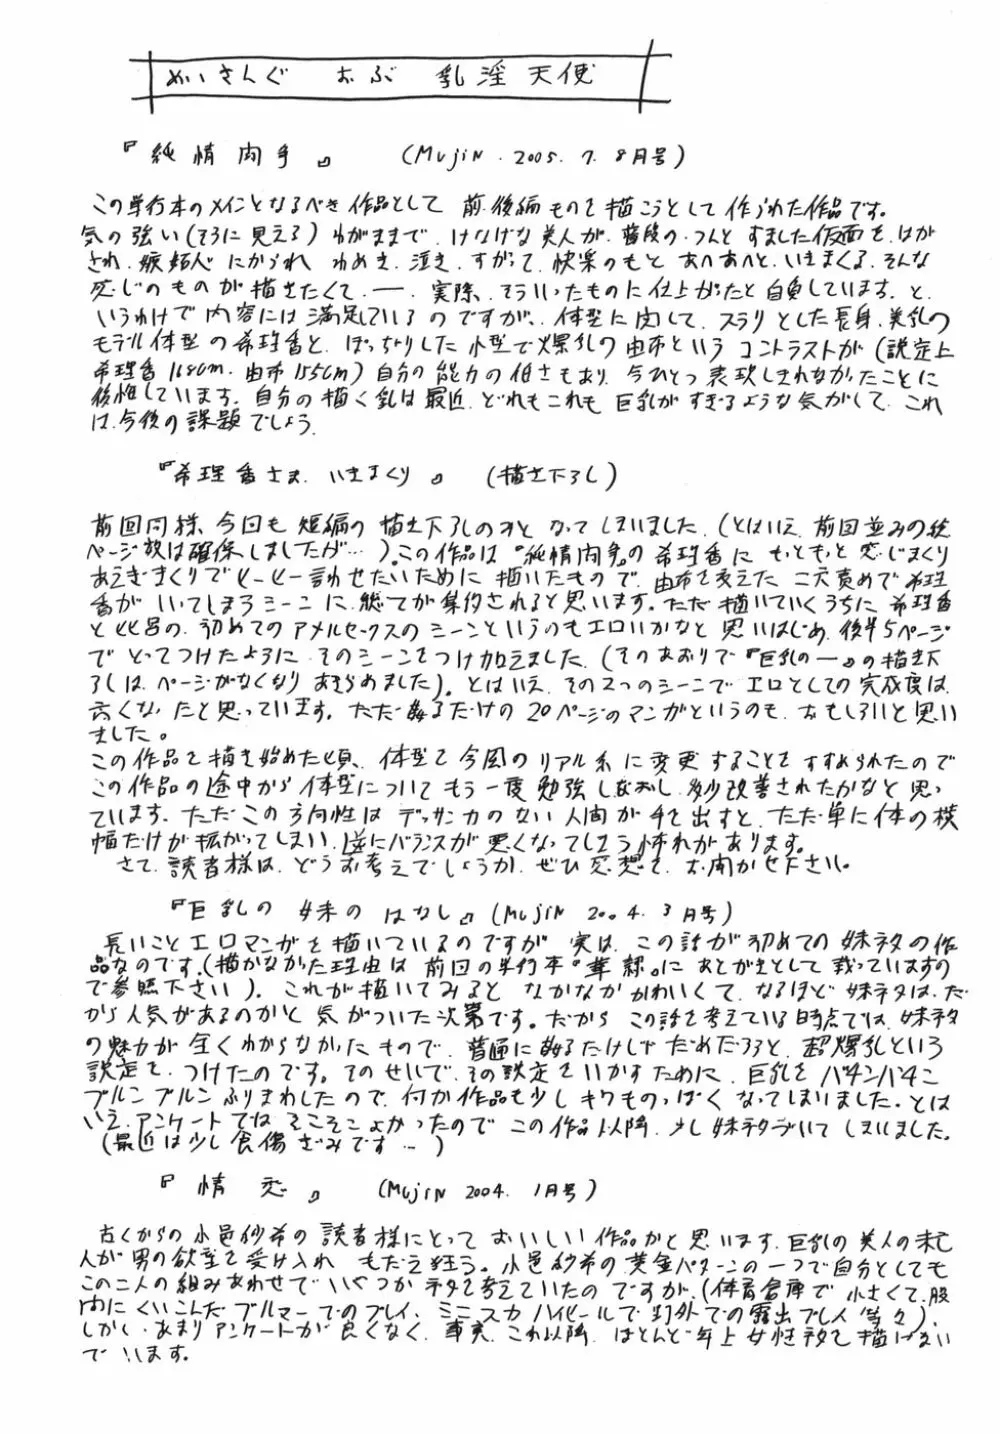 めいきんぐ おぶ 乳淫天使
『純情肉手』 (MUJIN.2005.7.8月号)
この単行本のメインとなるべき作品として 前.後編ものを描こうとして作られた作品です。
気の強い(そうに見える)わがままで、けなげな美人が、普段の.つんとすました仮面を.はが
され.嫉妬心にかられ わめき.泣き.すがって.快楽のもと あへあへと.いきまくる.そんな
感じのものが描きたくて.ー.実際、そういったものに仕上がったと自負しています。と.
いうわけで内容には満足しているのですが、.体型に関して.スラリとした長身.美乳の
モデル体型の希理香と.ぽっちゃりした小型で爆乳の由布というコントラストが(設定上
希理香168cm.由布155cm)自分の能力の低さもあり.今ひとつ表現しきれなかったことに
後悔しています。自分の描く乳は最近.どれもこれも 巨乳がすぎるような気がして.これ
は.今後の課題でしょう.
『希理香さま.いきまくり』 (描き下ろし)
前回同様、今回も 短編の描き下ろしのみとなってしまいました.(とはいえ.前回並みの総
ページ数は確保しましたが…).この作品は『純情肉手』の希理香に もっともっと感じまくり
あえぎまくりでヒーヒー言わせたいために描いたもので.由布を交えた二穴責めで希理
香がいってしまうシーンに.総てが集約されると思います。ただ描いていくうちに希理香
と 初めてのアナルセックスのシーンというのもエロいかなと思いはじめ.後半5ページ
でとってつけたようにそのシーンをつけ加えました.(そのあおりで『巨乳のー』の描き下
ろしは.ページがなくなり あきらめました)。とはいえ.その2つのシーンでエロとしての完成度は
高くなったと思っています。ただ だけの20ページのマンガというのも.おもしろいと思い
ました。
この作品を描き始めた頃、体型を今風のリアル系に変更することをすすめられたので
この作品の途中から体型についてもう一度勉強しなおし.多少改善されたかなと思っ
ています.ただこの方向性はデッサン力のない人間が手を出すと.ただ単に体の横
幅だけが拡がってしまい.逆にバランスが悪くなってしまう怖れがあります。
さて.読者様は.どうお考えでしょうか.ぜひ感想を.お聞かせ下さい。
『巨乳の妹のはなし』(MUJIN 2004.3月号)
長いことエロマンガを描いているのですが 実は、この話が初めての妹ネタの作
品なのです.(描かなかった理由は前回の単行本『 』にあとがきとして載っていますの
で参照下さい).これが描いてみると なかなかかわいくて.なるほど妹ネタは.だ
から人気があるのかと気がついた次第です。だから この話を考えている時点では.妹ネタ
の魅力が全くわからなかったもので.普通に だけじゃだめだろうと、超爆乳という
設定を.つけたのです。そのせいで.その設定をいかすために.巨乳をバチンバチン
ブルンブルンふりまわしたので.何か作品も少しキワものっぽくなってしまいました.とは
いえ.アンケートではそこそこよかったのでこの作品以降.少し妹ネタづいてしまいました。
(最近は少し食傷ぎみです…)
『情恋』 (MUJIN 2004.1月号)
古くからの小邑紗希の読者様にとっておいしい作品かと思います.巨乳の美人の未亡
人が男の欲望を受け入れ もだえ狂う。小邑紗希の黄金パターンの一つで自分としても
この二人の組みあわせでいくつかネタを考えていたのですが.(体育倉庫で小さくて.股
間にくいこんだブルマーでのプレイ、ミニスカハイヒールで野外での露出プレイ等々).
しかし.あまりアンケートが良くなく.事実.これ以降.ほとんど年上女性ネタを描けない
でいます。